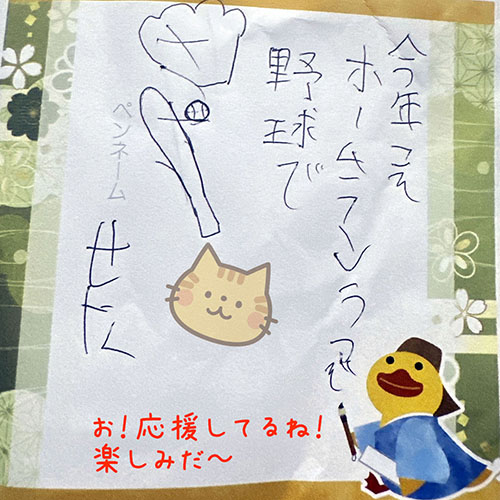 今年こそ
ホームランうつぞ
野球で
ペンネーム
お!応援してるね!
楽しみだ〜